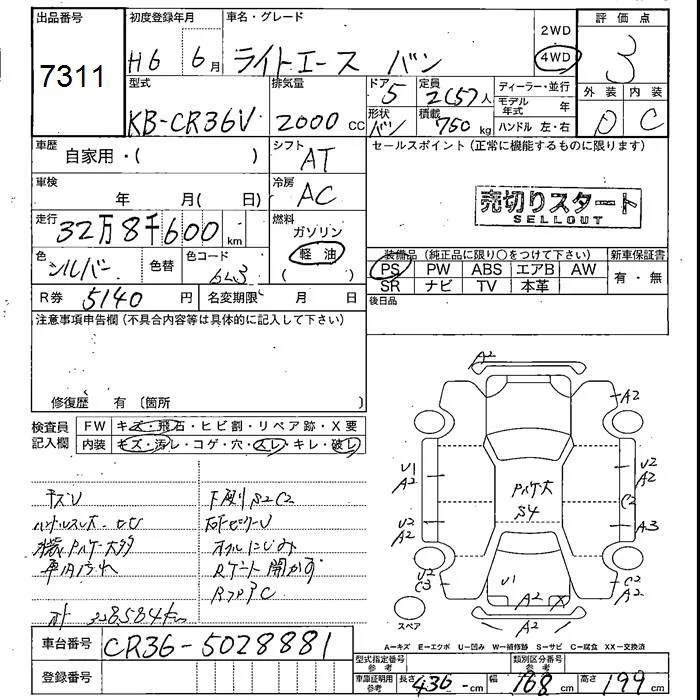 出品番号 初度登録年月 車名・グレード 2WD 評価点
7311 H6 6月 ライトエース バン 4WD 3
型式 排気量 ドア 5 定員 2(5)人 ディーラー・並行 外装 内装
KB-CR36V 2000cc 形状 バン 積載 750kg モデル年式 年 D C
ハンドル 左・右
車歴 自家用・( ) シフト AT セールスポイント(正常に機能するものに限ります)
車検 年 月( 日) 冷房 AC
売切りスタート
SELLOUT
走行 32万8千600km 燃料 ガソリン
軽油
( )
装備品(純正品に限り○をつけて下さい) 新車保証書
色 シルバー 色替 色コード 6L3 PS PW ABS エアB AW 有・無
SR ナビ TV 本革
R券 5140円 名変期限 月 日 後日品
注意事項申告欄(不具合内容等は具体的に記入して下さい)
修復歴 有 (箇所 )
検査員記入欄 FW キズ・飛石・ヒビ割・リペア跡・X要
内装 キズ・汚レ・コゲ・穴・スレ・キレ・破レ
キズU 下廻りS2C2
オイルにじみ
車内汚れ Rゲート開かず
計 328584km
A2
A2
U1 A2 U2 A2
C2
パネル大 S4
U2 A2 A3
U2 C3 U1 C2 A2
A2 X
A2
スペア
A-キズ E-エクボ U-凹み W-補修跡 S-サビ C-腐食 XX-交換済
車台番号 CR36-5028881
登録番号
型式指定番号 参考 類別区分番号 参考
車庫証明用 参考 長さ 436-cm 幅 168cm 高さ 199cm